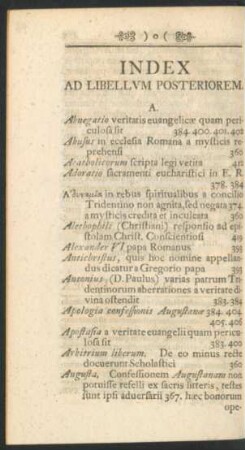 ) o (
INDEX
AD LIBELLVM POSTERIOREM.
A.
Abnegatio veritatis euangelicæ quam peri-
culosa sit 384. 400. 401. 402
Abusus in ecclesia Romana a mysticis re-
prehensi 360
Acatholicorum scripta legi vetita 411
Adoratio sacramenti eucharistici in E. R.
378. 384
in rebus spiritualibus a concilio
Tridentino non agnita, sed negata 374
a mysticis credita et inculcata 360
Alethophili (Christiani) responsio ad epi-
stolam Christ. Conscientiosi
Alexander VI papa Romanus
Antichristus, quis hoc nomine appellan-
dus dicatur a Gregorio papa 393
Antonius (D. Paulus) varias patrum Tri-
dentinorum aberrationes a veritate di-
vina ostendit 383. 384
Apologia confessionis Augustanæ 384. 404.
405. 406
Apostasia a veritate euangelii quam pericu-
losa sit 383. 400
Arbitrium liberum. De eo minus recte
docuerunt Scholastici 360
Augusta. Confessionem Augustanam non
potuisse refelli ex sacris litteris, testes
sunt ipsi adversarii 367. hæc bonorum
ope-